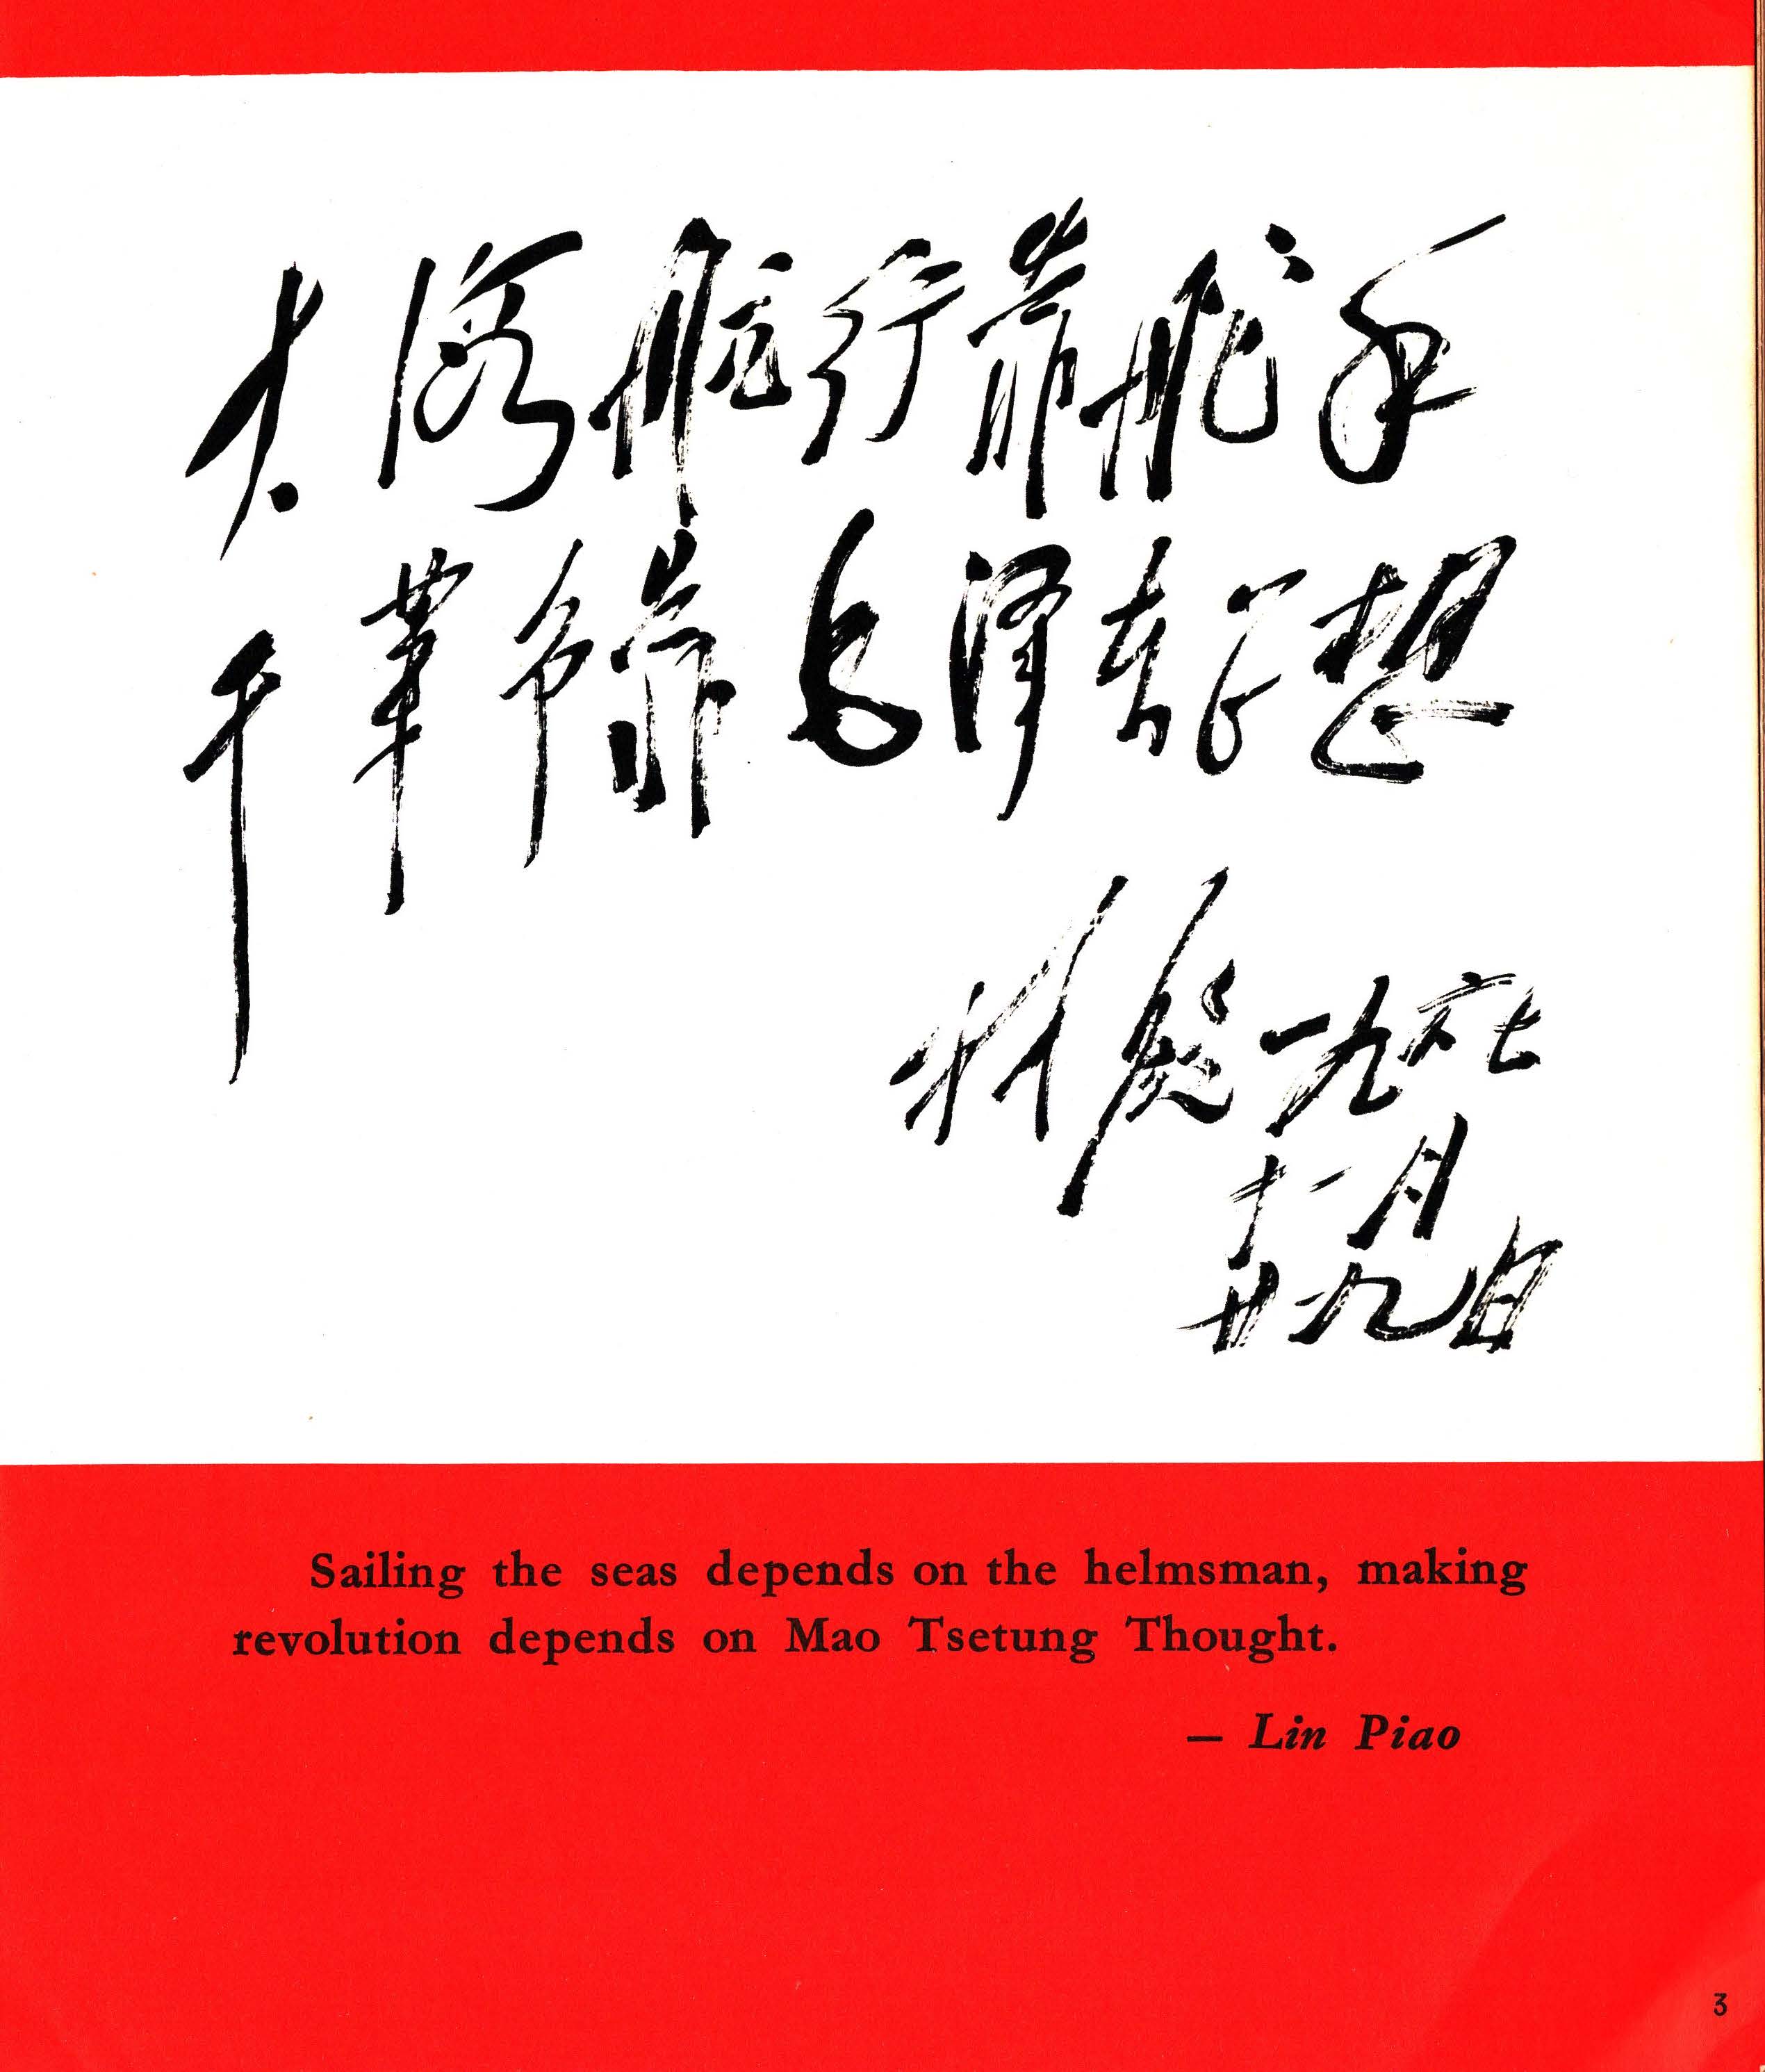 大海航行靠舵手
干革命靠毛泽东思想
林彪 一九六七
十一月
廿九日
Sailing the seas depends on the helmsman, making
revolution depends on Mao Tsetung Thought.
— Lin Piao
3